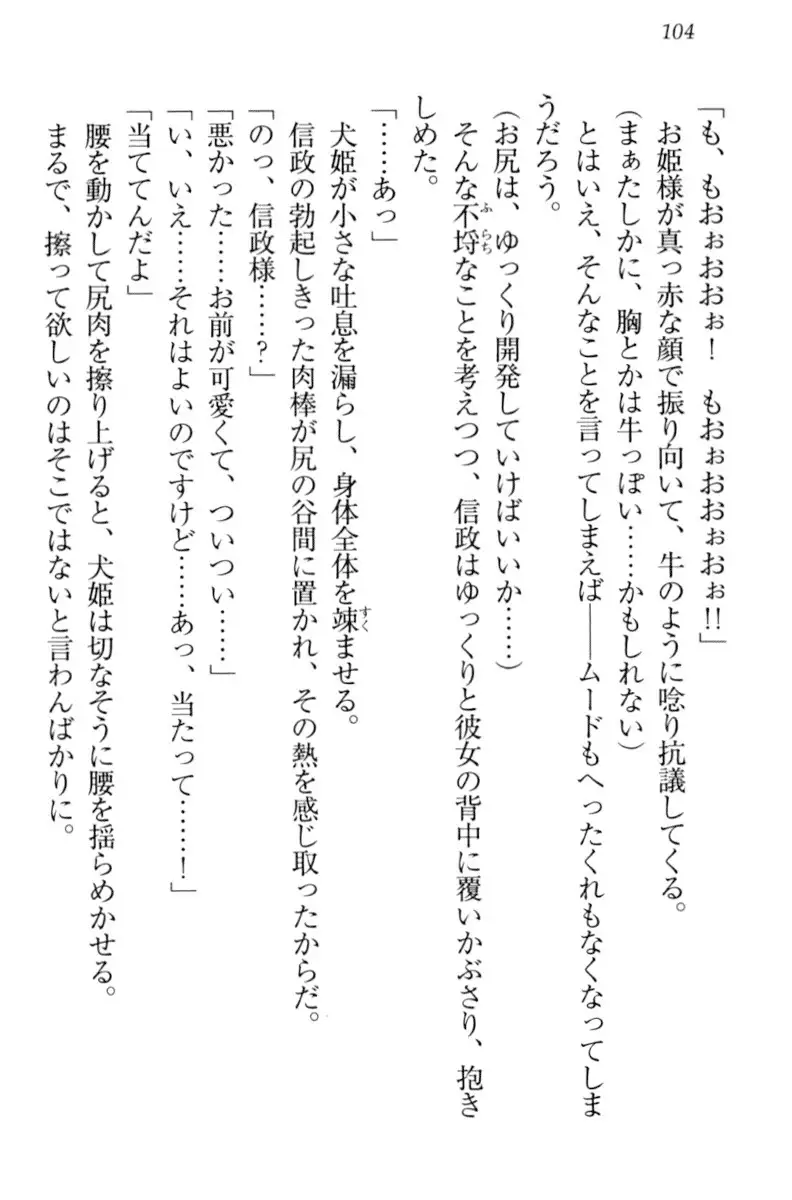 104
「も、もおぉおおぉ！　もおぉおおぉおぉ!!」
お姫様が真っ赤な顔で振り向いて、牛のように唸り抗議してくる。
(まぁたしかに、胸とかは牛っぽい……かもしれない)
とはいえ、そんなことを言ってしまえば――ムードもへったくれもなくなってしま
うだろう。
(お尻は、ゆっくり開発していけばいいか……)
そんな不埒なことを考えつつ、信政はゆっくりと彼女の背中に覆いかぶさり、抱き
しめた。
「……あっ」
犬姫が小さな吐息を漏らし、身体全体を竦ませる。
信政の勃起しきった肉棒が尻の谷間に置かれ、その熱を感じ取ったからだ。
「のっ、信政様……？」
「悪かった……お前が可愛くて、ついつい……」
「い、いえ……それはよいのですけど……あっ、当たって……！」
「当ててんだよ」
腰を動かして尻肉を擦り上げると、犬姫は切なそうに腰を揺らめかせる。
まるで、擦って欲しいのはそこではないと言わんばかりに。